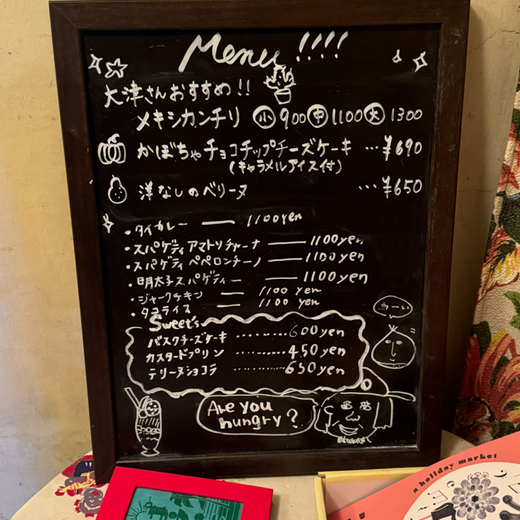 Menu!!!!
大津さんおすすめ!!
メキシカンチリ 小 900 中 1100 大 1300
かぼちゃチョコチップチーズケーキ …¥690
(キャラメルアイス付)
洋なしのベリーヌ …¥650
・タイカレー — 1100yen
・スパゲティアマトリチャーナ — 1100yen
・スパゲティペペロンチーノ — 1100yen
・明太子スパゲティー — 1100yen
・ジャークチキン — 1100yen
・タコライス — 1100yen
Sweet's
バスクチーズケーキ ……… 600yen
カスタードプリン ……… 450yen
テリーヌショコラ ……… 650yen
Are you
hungry?
a holiday market